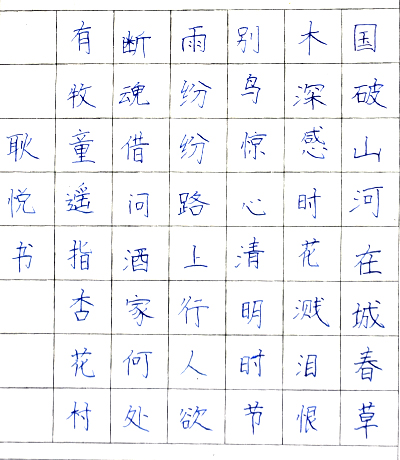 国破山河在城春草
木深感时花溅泪恨
别鸟惊心清明时节
雨纷纷路上行人欲
断魂借问酒家何处
有牧童遥指杏花村
耿悦书